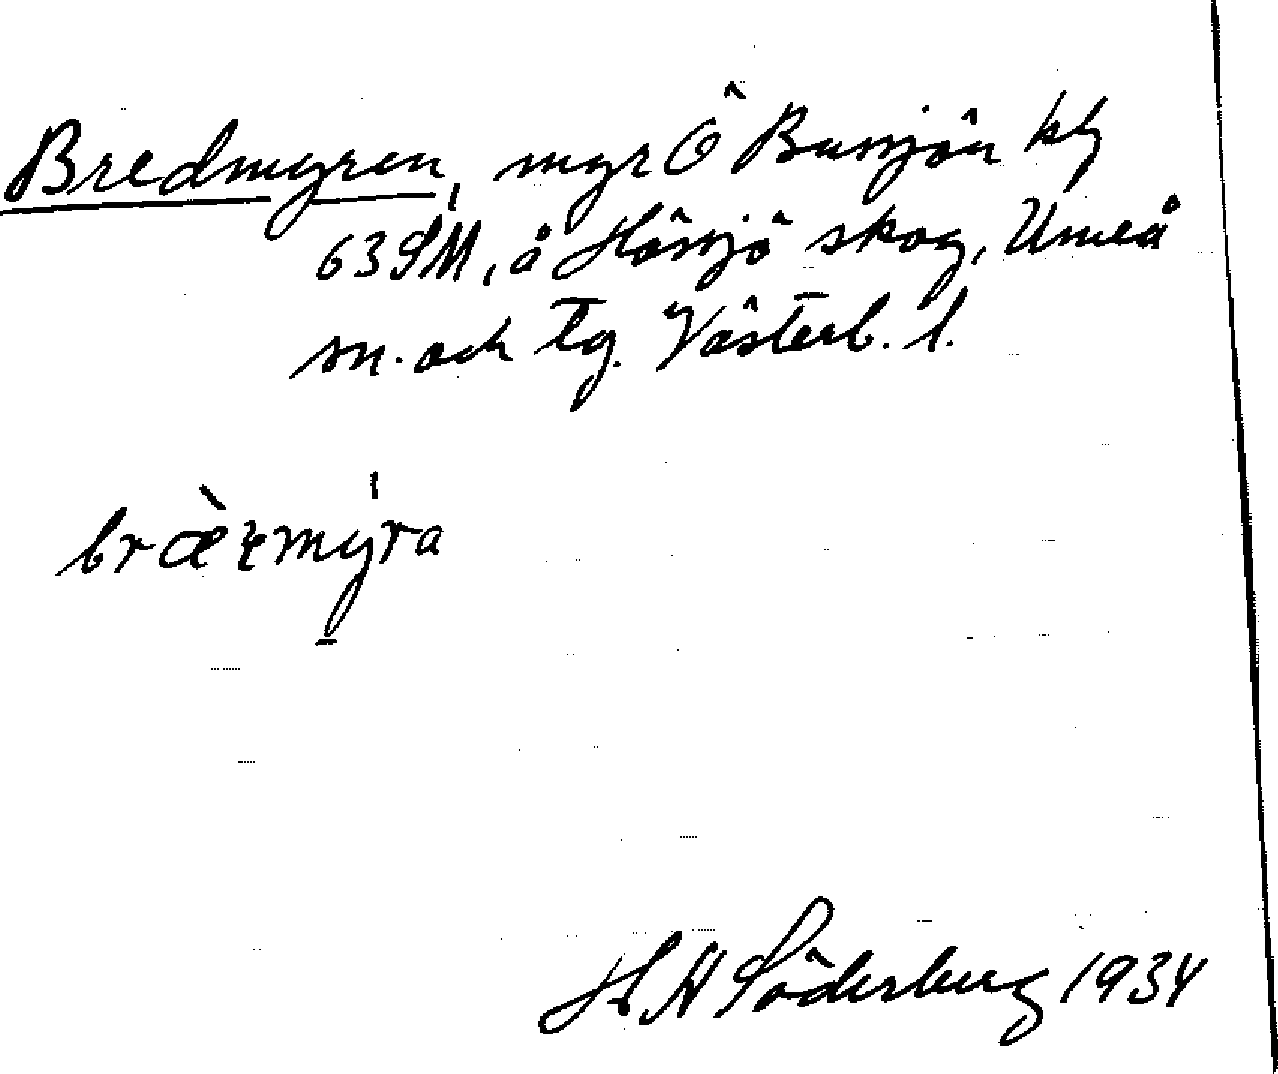 Bredmyren, myr Ö Bunsjön kbl
63 SM, å Hössjö skog, Umeå
sn. och tg. Västerb. l.
bræ̀rmy̠ra
H Söderberg 1934